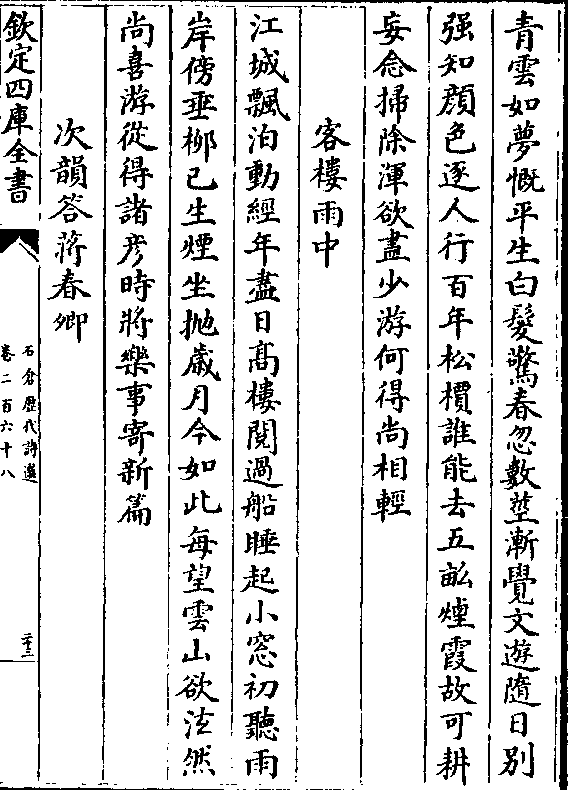 青雲如夢慨平生白髮驚春忽數莖漸覺文遊隨日别
强知顔色逐人行百年松檟誰能去五畝煙霞故可耕
妄念掃除渾欲盡少游何得尚相輕
客樓雨中
江城飄泊動經年盡日髙樓閱過船睡起小窓初聽雨
岸傍垂柳已生煙坐抛歲月今如此每望雲山欲泫然
尚喜游從得諸彦時將樂事寄新篇
次韻答蔣春卿
欽定四庫全書
石倉歷代詩選
卷二百六十八
二十三